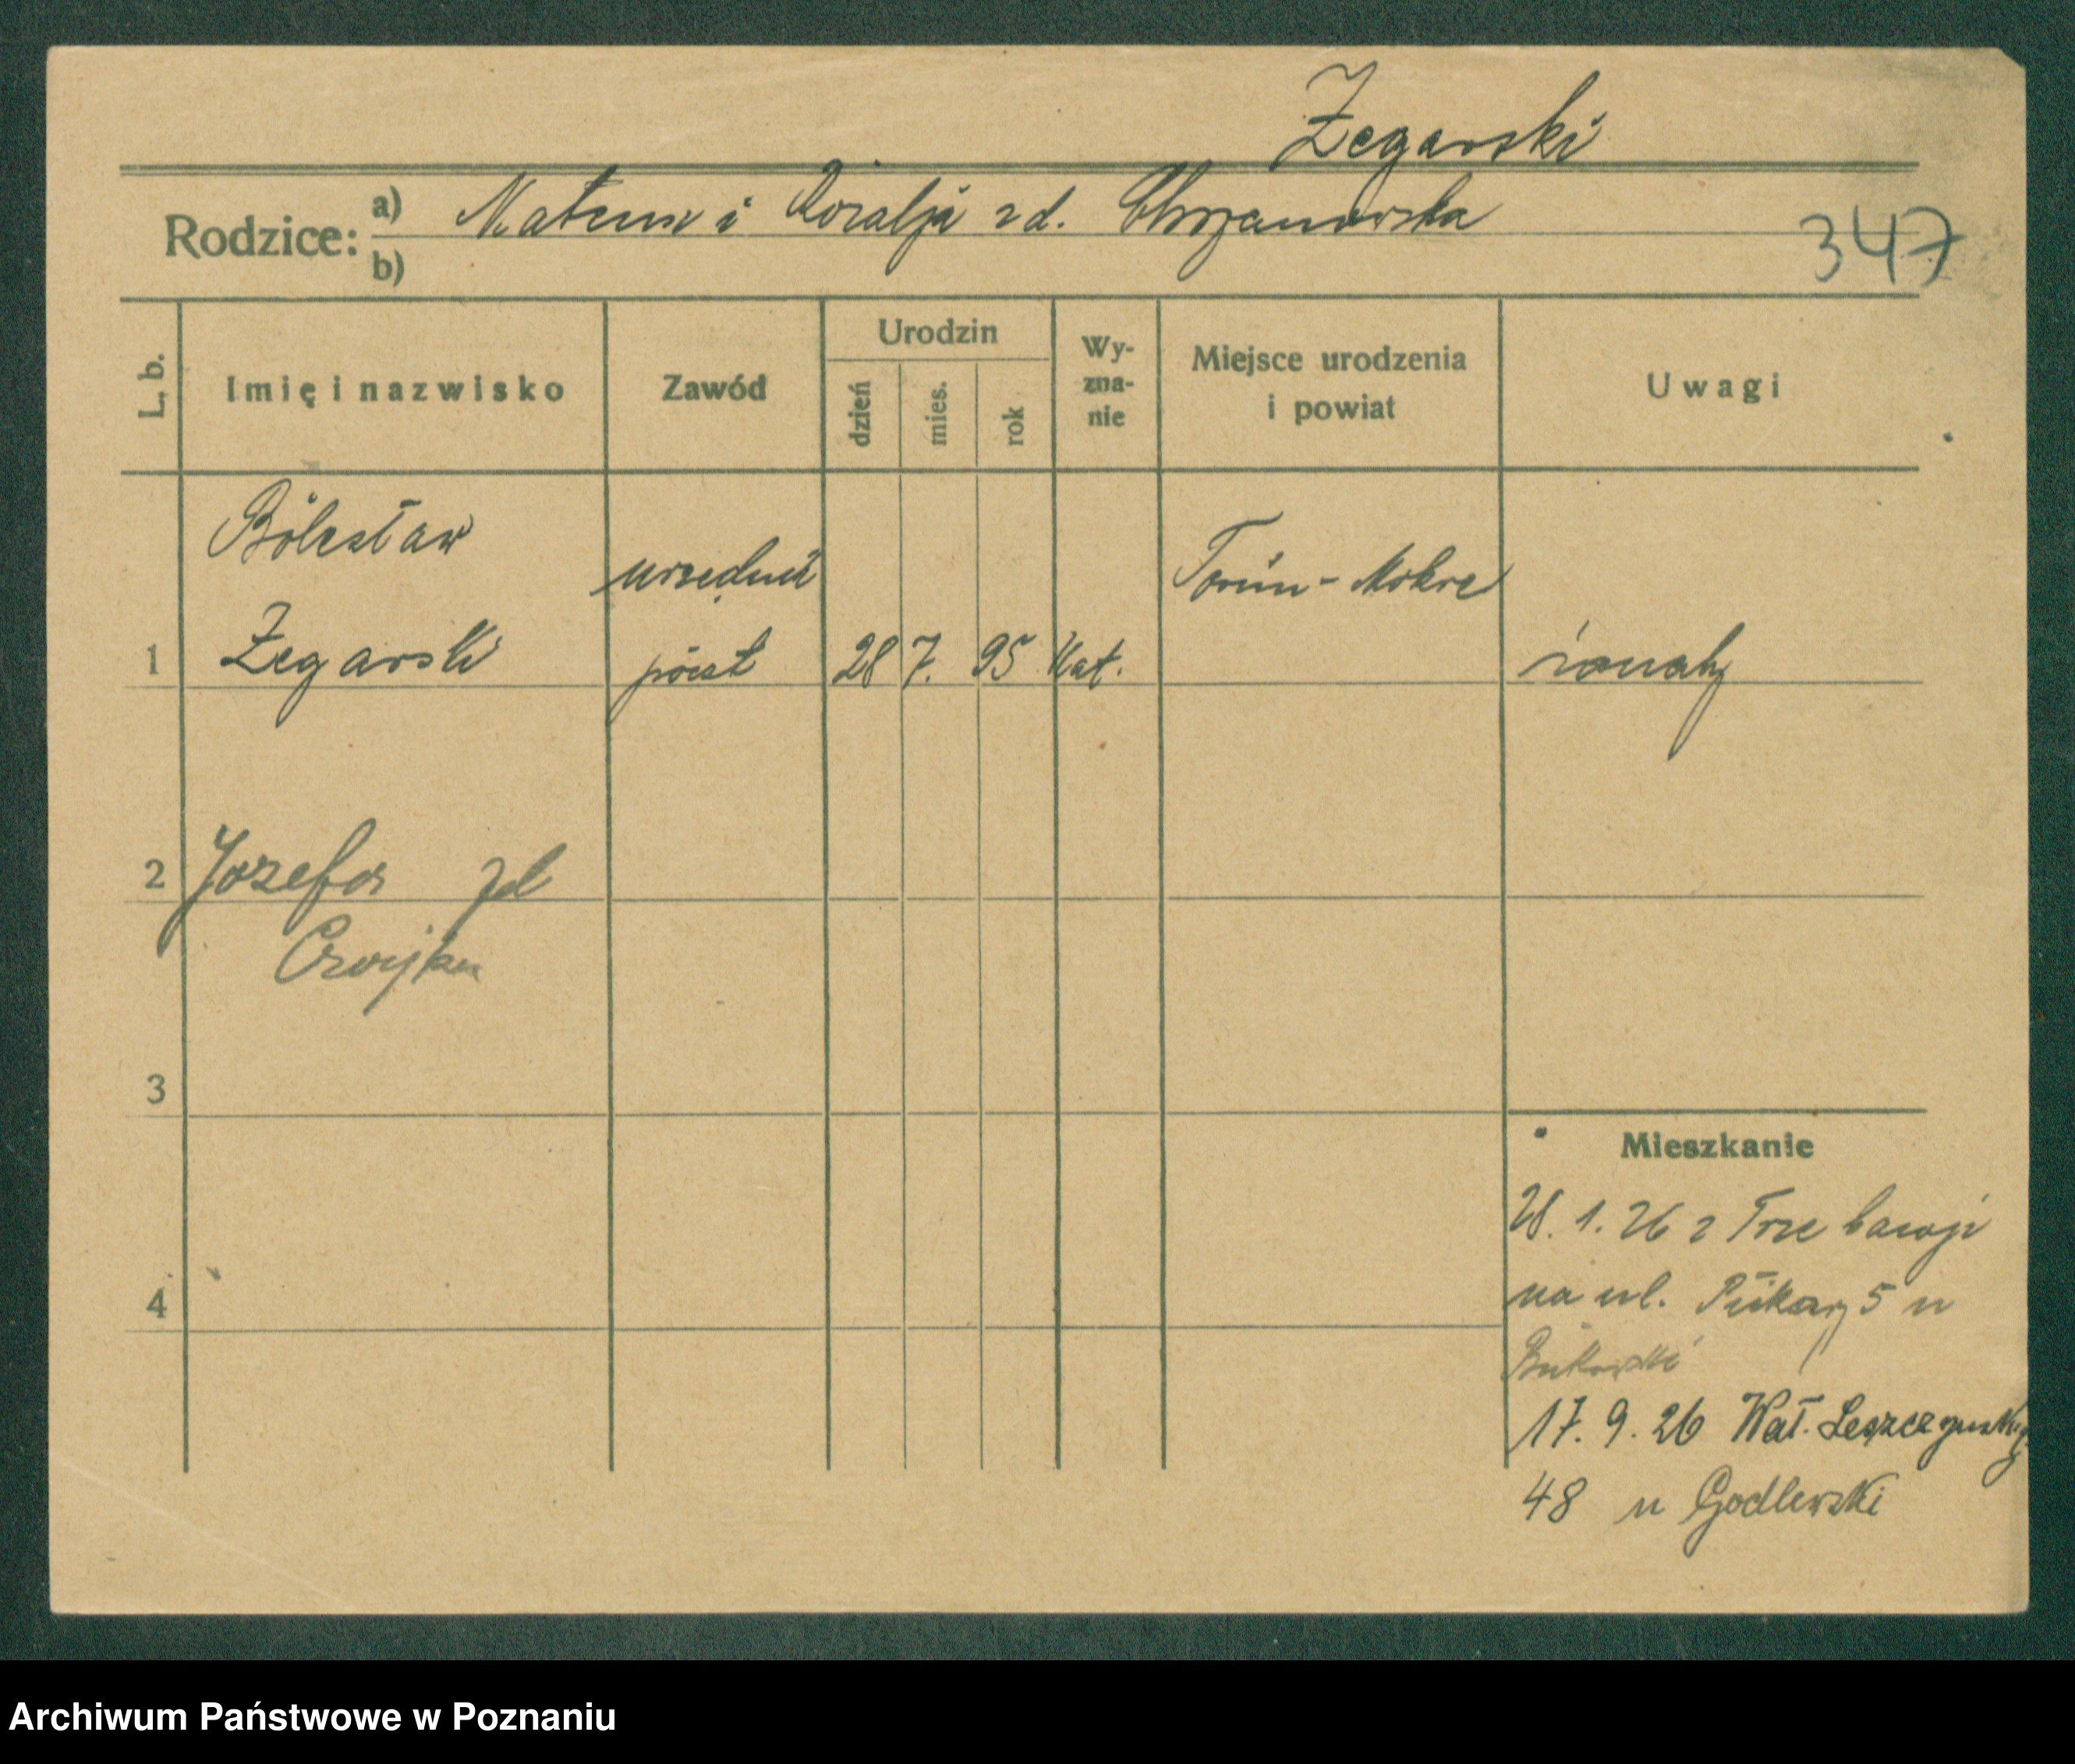 Żegarski
Rodzice: a) Mateusz i Rozalja zd. Chrzanowska
b)
347
L. b.
Imię i nazwisko
Zawód
Urodzin
dzień
mies.
rok
Wy-
zna-
nie
Miejsce urodzenia
i powiat
Uwagi
Bolesław
urzędnik
Toruń - Mokre
1 Żegarski poczt 28 7. 95 Kat. żonaty
2 Jozefa zd
3
4
Mieszkanie
28. 1. 26 z
na ul. Piekary 5 u
Bukowski
17. 9. 26 Wał. Leszczyńskiego
48 u Godlewski
Archiwum Państwowe w Poznaniu